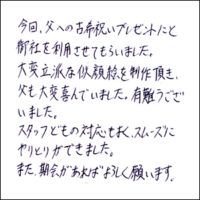 今回、父への古希祝いプレゼントにと
御社を利用させてもらいました。
大変立派な似顔絵を制作頂き、
父も大変喜んでいました。有難うござ
いました。
スタッフどもの対応もよく、スムーズに
やりとりができました。
また、期会があればよろしく願います。